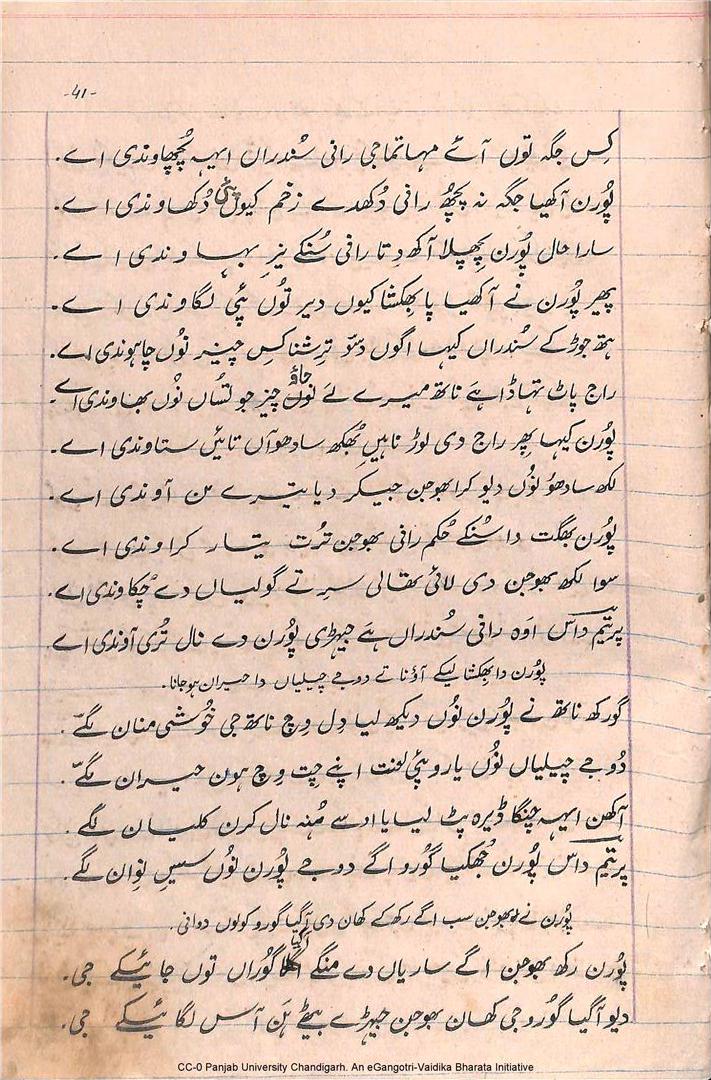 -41-
کِس جگہ توں آئے مہاتماجی رانی سُندراں ایہہ پُچھاوندی اے۔
پُورن آکھیا جگہ نہ پُچھ رانی دُکھدے زخم کیوں پئی دُکھاوندی اے۔
سارا حال پُورن پچھلا آکھ دِتا رانی سُنکے نِیر بہاوندی اے۔
پھیر پُورن نے آکھیا پا بھکشا کیوں دیر توُں پئی لگاوندی اے۔
ہتھ جوڑکے سُندراں کیہا اگوں دسّو ترِشنا کِس چیز نوُں چاہوندی اے۔
راج پاٹ تہاڈا ہے ناتھ میرے لے جاؤ چیز جو تساں نوُں بھاوندی اے۔
پُورن کیہا پھِر راج دی لوڑ ناہیں بھُکھ سادھوآں تائیں ستاوندی اے۔
لکھ سادھوُ نوُں دیو کرا بھوجن جیکر دیا تیرے من آوندی اے۔
پُورن بھگت دا سُنکے حُکم رانی بھوجن تُرت تیار کراوندی اے۔
سوا لکھ بھوجن دی لائی تھالی سِر تے گولیاں دے چُکاوندی اے۔
پرِیتم داس اوہ رانی سُندراں ہے جیہڑی پُورن دے نال تُری آوندی اے
پُورن دا بھِکشا لیکے آؤنا تے دوجے چیلیاں دا حیران ہوجانا۔
گورکھ ناتھ نے پُورن نوُں دیکھ لیا دِل وچ ناتھ جی خُوشی منان لگے۔
دُوجے چیلیاں نوُں یارو پئی لعنت اپنے چِت وِچ ہون حیران لگے۔
آکھن ایہہ چنگا ڈیرہ پٹ لیایا ادسے مُنہ نال کرن کلیان لگے۔
پرِیتم داس پُورن جُھکیا گورو اگے دوجے پُورن نوُں سِیس نِوان لگے۔
پُورن نے بھوجن سب اگے رکھ کے کھان دی آگیا گورو کولوں دوانی۔
پُورن رکھ بھوجن اگے ساریاں دے منگے آگیا گوُراں توں جائیکے جی۔
دیو آگیا گورو جی کھان بھوجن جیہڑے بیٹھے ہَن آس لگائیکے جی۔
CC-0 Panjab University Chandigarh. An eGangotri-Vaidika Bharata Initiative